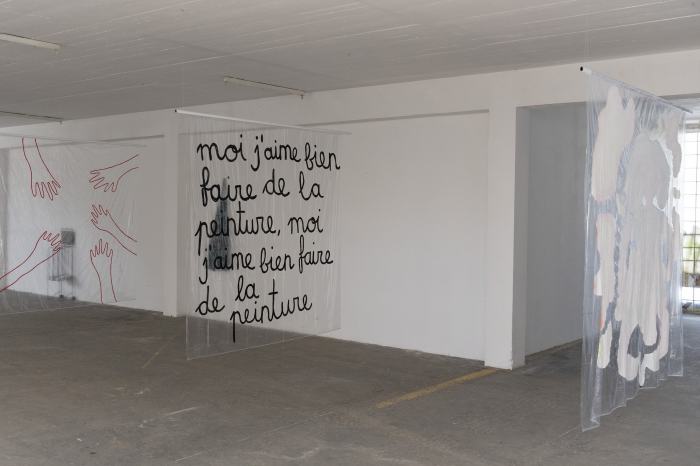 moi j'aime bien
faire de la
peinture, moi
j'aime bien faire
de la
peinture